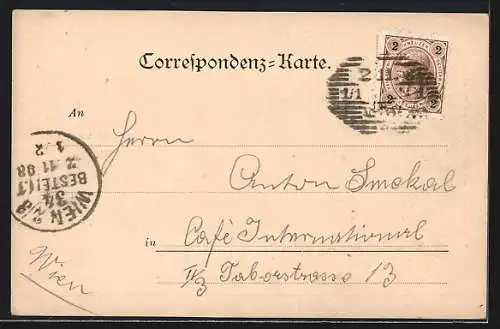 Correspondenz=Karte.
2 2
2 2
An
Herrn
Anton Smekal
in
Café International
II/3 Taborstrasse 13
Wien
WIEN
BESTELLT
2.11.98